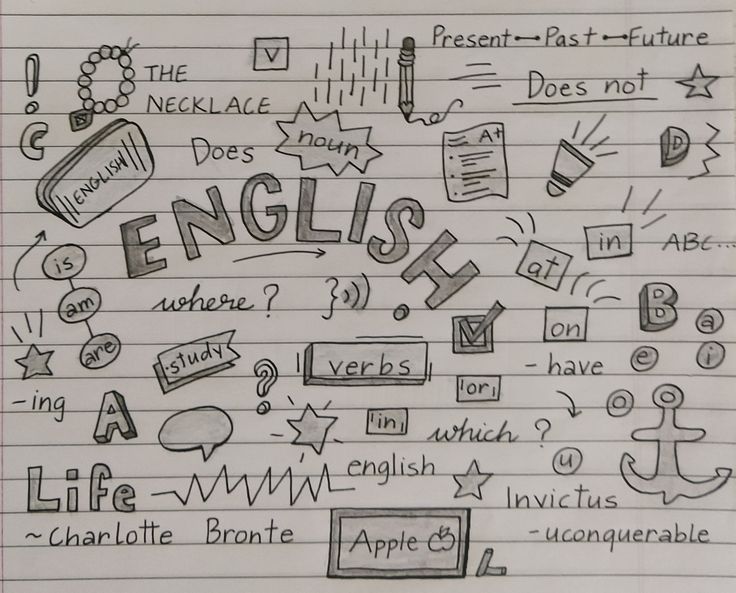 Present Past Future
THE
NECKLACE
V
Does not
C
ENGLISH
Does
noun
A+
D
ENGLISH
in
ABC...
is
at
am
where?
B
a
on
are
study
verbs
- have
e
i
-ing
?
or
A
in
which ?
o
u
english
Life
Invictus
~Charlotte Bronte
Apple
-uconquerable
L